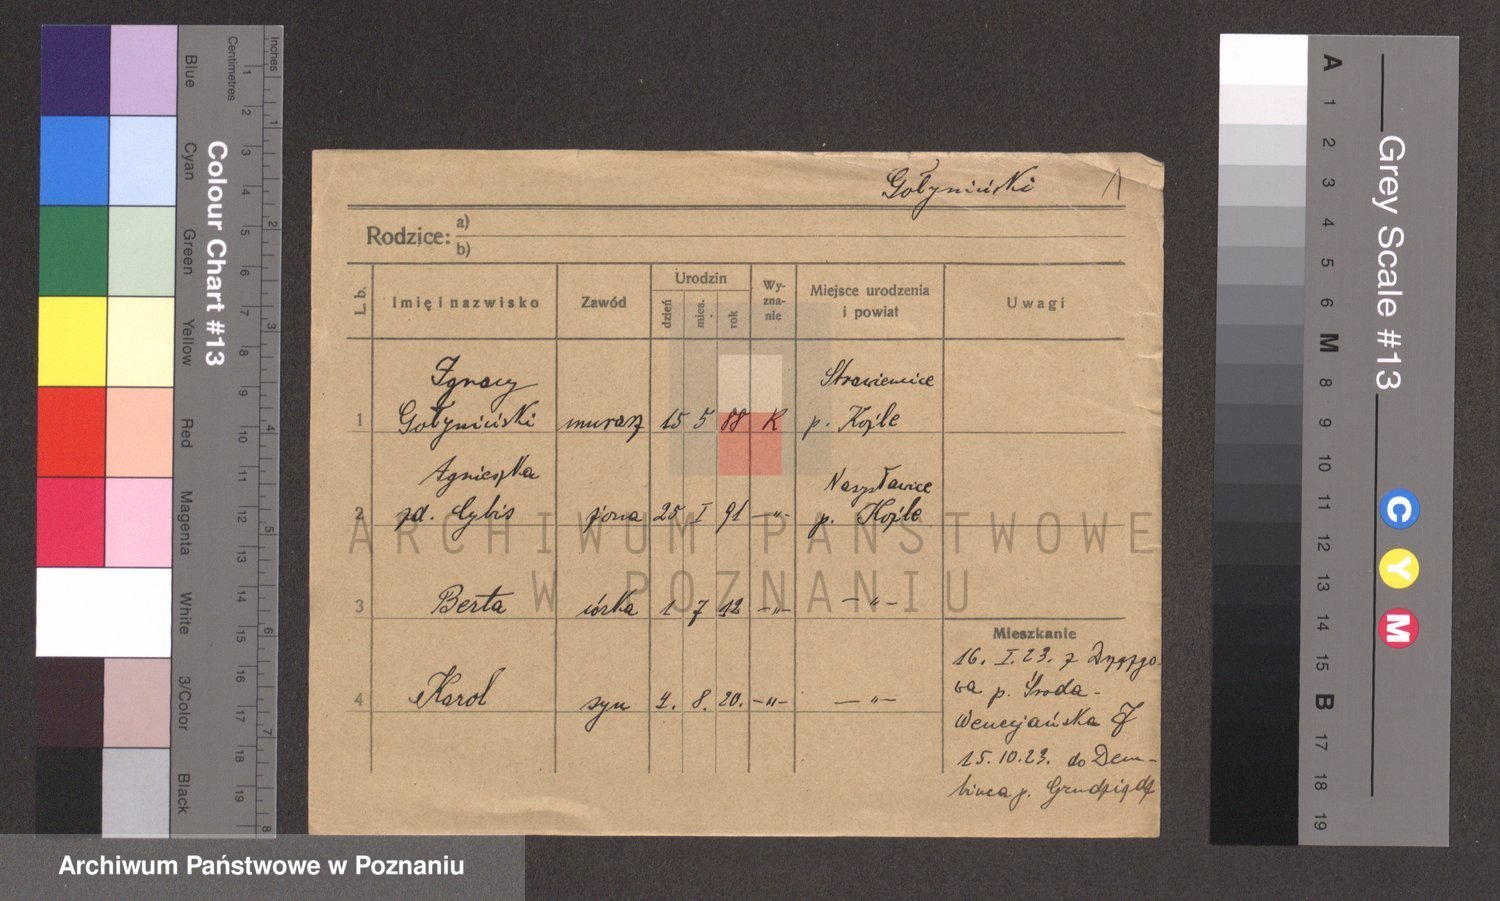 Gołyniński 1
Rodzice: a)
b)
L. b. Imię i nazwisko Zawód Urodzin dzień mies. rok Wy-zna-nie Miejsce urodzenia i powiat Uwagi
Ignacy
1 Gołyniński murarz 15 5 88 K p. Koźle
Agnieszka
2 zd. Cybis żona 25 I 91 —"— p. Koźle
3 Berta córka 1 7 12 —"— —"—
4 Karol syn 4. 8. 20. —"— —"—
Mieszkanie
16. I. 23. z
p. Środa -
Wenecjańska 7
15. 10. 23. do Dem-
binca p. Grudziądz
ARCHIWUM PAŃSTWOWE
W POZNANIU
Archiwum Państwowe w Poznaniu
Colour Chart #13
Centimetres Inches
1 2 3 4 5 6 7 8 9 10 11 12 13 14 15 16 17 18 19
1 2 3 4 5 6 7 8
Blue
Cyan
Green
Yellow
Red
Magenta
White
3/Color
Black
Grey Scale #13
A 1 2 3 4 5 6 M 8 9 10 11 12 13 14 15 B 17 18 19
C
Y
M